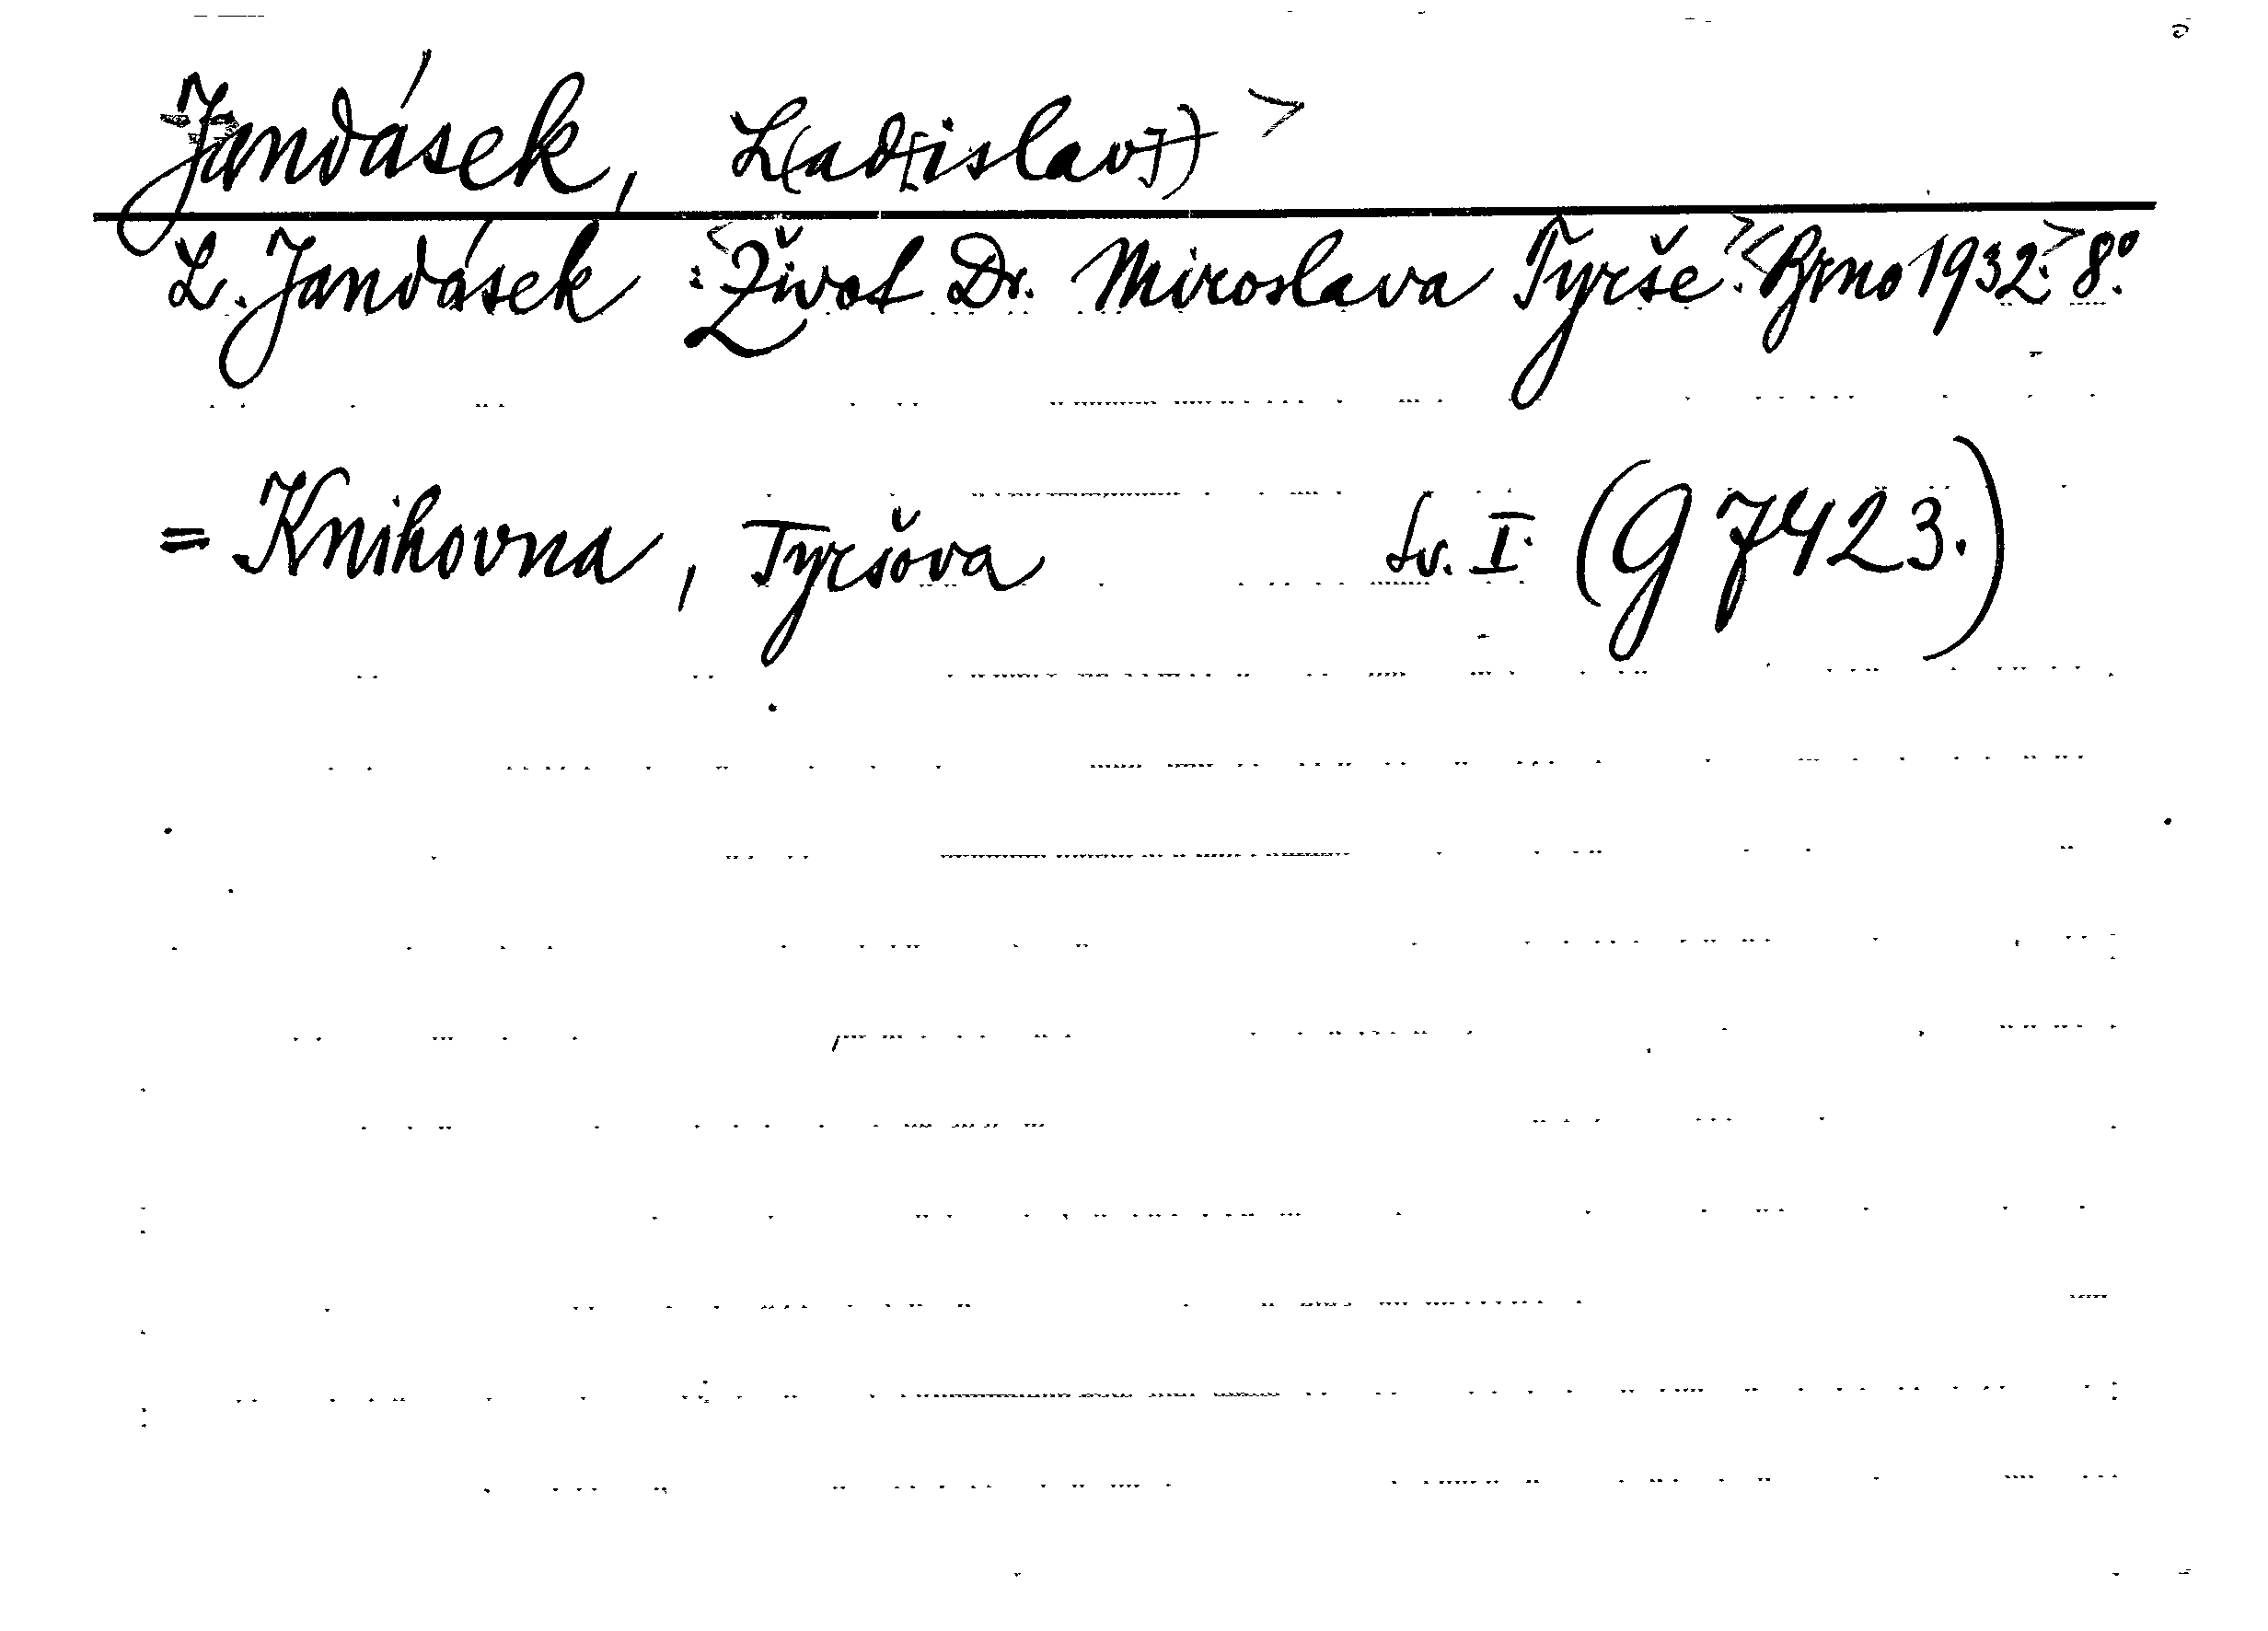 Jandásek, L(ad[islav])>
L. Jandásek: <Život Dr. Miroslava Tyrše.> <Brno 1932.> 8º.
= Knihovna, Tyršova Sv. I. (G 7423.)